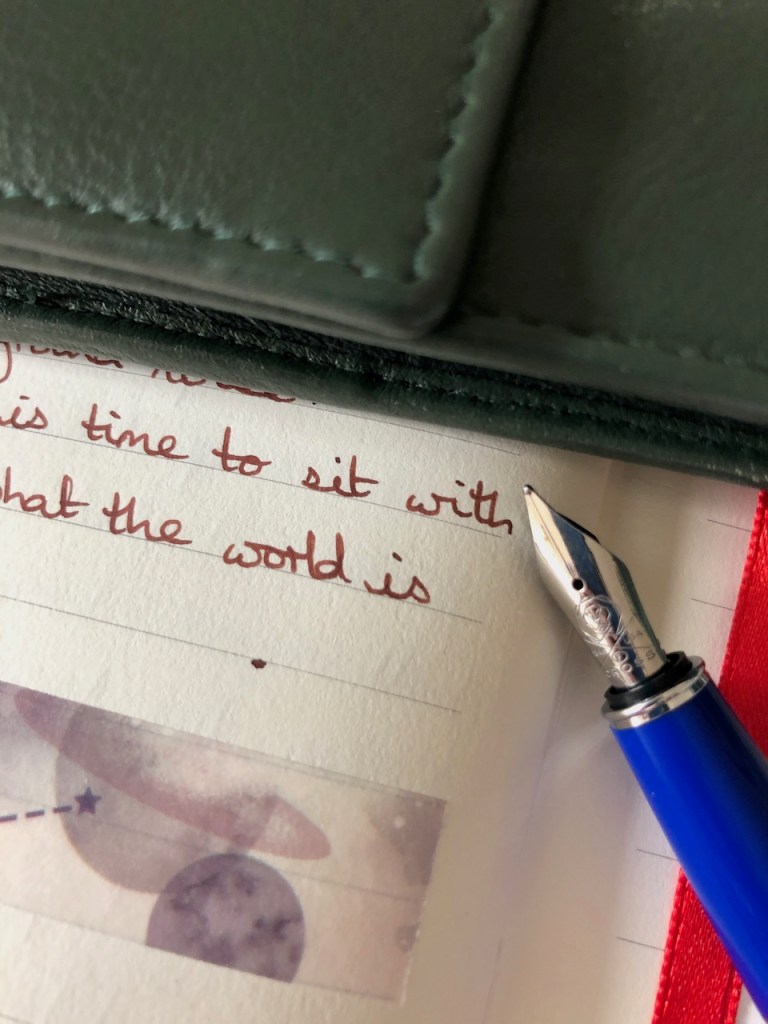 is time to sit with
the world is